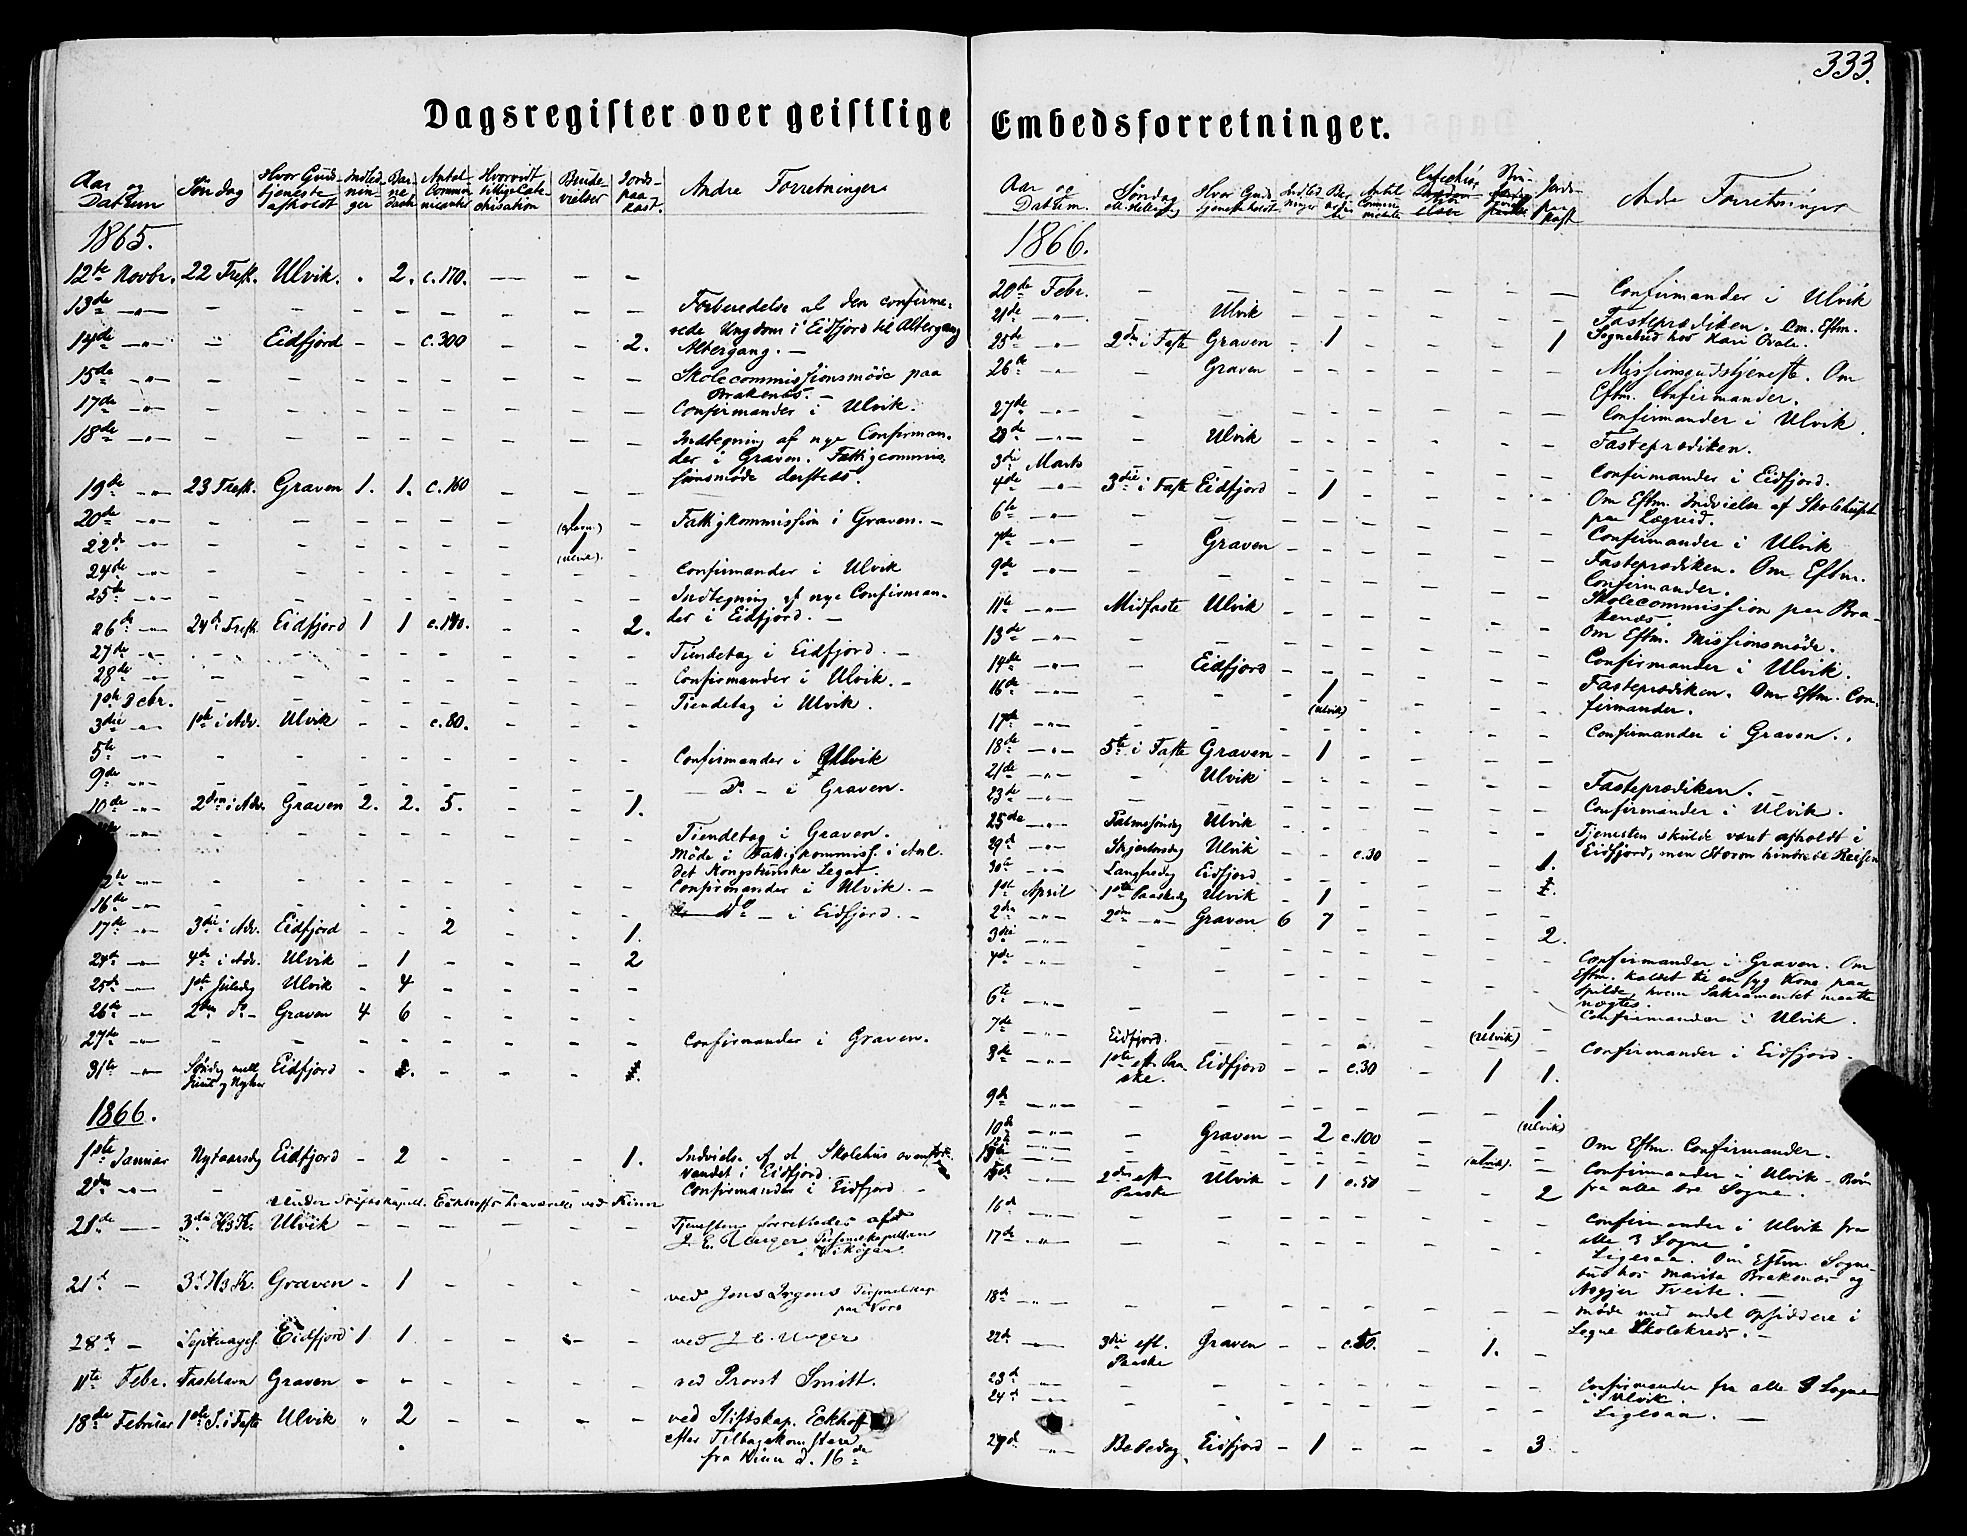 333.
Dagsregister over geistlige Embedsforretninger.
Aar og Datum | Søndag | Hvor Gudstjeneste afholdt | Indledninger | Barnedaab | Antal Communicanter | Hvorvidt tillige Catechisation | Brudevielser | Jordspaakast. | Andre Forretninger
1865.
12te Novbr. 22 Tref. Ulvik. . 2. c.170. — — —
13de —"— Forberedelse af den confirme-
rede Ungdom i Eidfjord til Altergang
14de —"— — Eidfjord — — c.300 — — 2. Altergang. —
15de —"— Skolecommissionsmøde paa
Brakenæs. —
17de —"— Confirmander i Ulvik.
18de —"— Indtegning af nye Confirman-
der i Graven. Fattigcommis-
sionsmøde dersteds.
19de —"— 23 Tref. Graven 1. 1. c.160 — — —
20de —"— 1 (Grav.) — Fattigkommission i Graven. —
22de —"— 1 (Ulvik). —
24de —"— Confirmander i Ulvik
25de —"— Indtegning af nye Confirman-
der i Eidfjord. —
26de —"— 24de Tref. Eidfjord 1 1 c.140. — — 2.
27de —"— Tiendetag i Eidfjord. —
28de —"— Confirmander i Ulvik. —
1ste Decbr. Tiendetag i Ulvik.
3die —"— 1ste i Adv. Ulvik — — c.80. — — —
5te —"— Confirmander i Ulvik
9de —"— — Do. — i Graven.
10de —"— 2den i Adv. Graven 2. 2. 5. — — 1.
—"— Tiendetag i Graven.
Møde i Fattigkommiss. i Anl.
det Kongstunske Legat.
—"— Confirmander i Ulvik. —
16de —"— Do — i Eidfjord. —
17de —"— 3die i Adv. Eidfjord — — 2 — — 1.
24de —"— 4de i Adv. Ulvik — 1 — — — 2
25de — 1ste Juledag Ulvik — 4
26de — 2den Do — Graven 4 6
27de —"— Confirmander i Graven.
31te —"— Søndag mell. Juul og Nytaar Eidfjord
1866.
1ste Januar Nytaarsdag Eidfjord — 2 — — — 1. Indvielse af et Skolehus ovenfor
Vandet i Eidfjord.
2den —"— Confirmander i Eidfjord —
Under Stiftskapell. Eckhoffs Fraværelse ved Kinn
21de — 3die HsK. Ulvik — — — — — — Tjenesten forrettedes af
J. E. Unger Personelkapellan
i Vikøer
21de — 3d. HsK. Graven — 1 — — — ved Jens Irgens Personelkap.
paa Vors
28de — Septuages. Eidfjord 1 1 — — — — ved J. E. Unger
11te Febr. Fastelavn Graven — — — — — — ved Provst Smitt.
18de Februar 1ste S. i Faste Ulvik " 2 — — — — ved Stiftskap. Eckhoff
efter Tilbagekomsten
fra Kinn d. 16de
Aar og Datum. | Søndag ell. Helligdag | Hvor Gudstjeneste holdt | Indledninger | | Antal Communicanter | | | Jordspaakast | Andre Forretninger
1866.
20de Febr. Confirmander i Ulvik
21de —"— Ulvik Fasteprædiken. Om Eftm.
Sognebud hos Kari Ovale.
25de —"— 2den i Faste Graven — 1 — — — 1
26de — Graven Missionsgudstjeneste. Om
Eftm. Confirmander.
27de —"— Confirmander i Ulvik.
28de —"— Ulvik Fasteprædiken.
3die Marts Confirmander i Eidfjord.
4de —"— 3die i Faste Eidfjord — 1 Om Eftm. Indvielse af Skolehuset
paa Lægreid.
6te —"— Confirmander i Ulvik
7de —"— Graven Fasteprædiken. Om Eftm.
Confirmander.
9de —"— Skolecommission paa Bra-
kenæs.
11te —"— Midfaste Ulvik Om Eftm. Missionsmøde.
13de —"— Confirmander i Ulvik.
14de —"— Eidfjord Fasteprædiken. Om Eftm. Con-
firmander.
16de —"— 1 (Ulvik)
17de —"— Confirmander i Graven.
18de —"— 5te i Faste Graven — 1
21de —"— Ulvik Fasteprædiken. —
23de —"— Confirmander i Ulvik.
25de —"— Palmesøndag Ulvik Tjenesten skulde været afholdt i
Eidfjord, men Storm hindrede Reisen
29de —"— Skjærtorsdag Ulvik — — c.30 — — 1.
30te —"— Langfredag Eidfjord
1ste April 1ste Paaskedag Ulvik — 1
2den —"— 2den —"— Graven 6 7 — — — 2.
3die —"—
4de —"— Confirmander i Graven. Om
Eftm. kaldet til en syg Kone paa
Spilde, hvem Sakramentet maatte
nægtes.
6te —"— 1 (Ulvik) Confirmander i Ulvik.
7de —"— Eidfjord. Confirmander i Eidfjord.
8de —"— 1ste eft. Paaske. Eidfjord — — c.30 — 1 1.
9de —"— 1 (Ulvik)
10de —"— Graven — 2 c.100 — Om Eftm. Confirmander.
(Ulvik).
Confirmander i Ulvik
fra alle tre Sogne.
15de —"— 2den eft. Paaske Ulvik — 1 c.50 — — 2
16de —"— Confirmander i Ulvik fra
alle 3 Sogne.
17de —"— Ligesaa. Om Eftm. Sogne-
bud hos Marita Brakenæs og
Asgjer Tveite. —
18de —"— Møde med endel Opsiddere i
Skolekreds. —
22de — 3die eft. Paaske Graven — — c.50. — 1. —
23de —"— Confirmander fra alle 3 Sogne
i Ulvik.
24de —"— Ligesaa. —
27de —"— Bededag. Eidfjord — 1 — — — 3. —